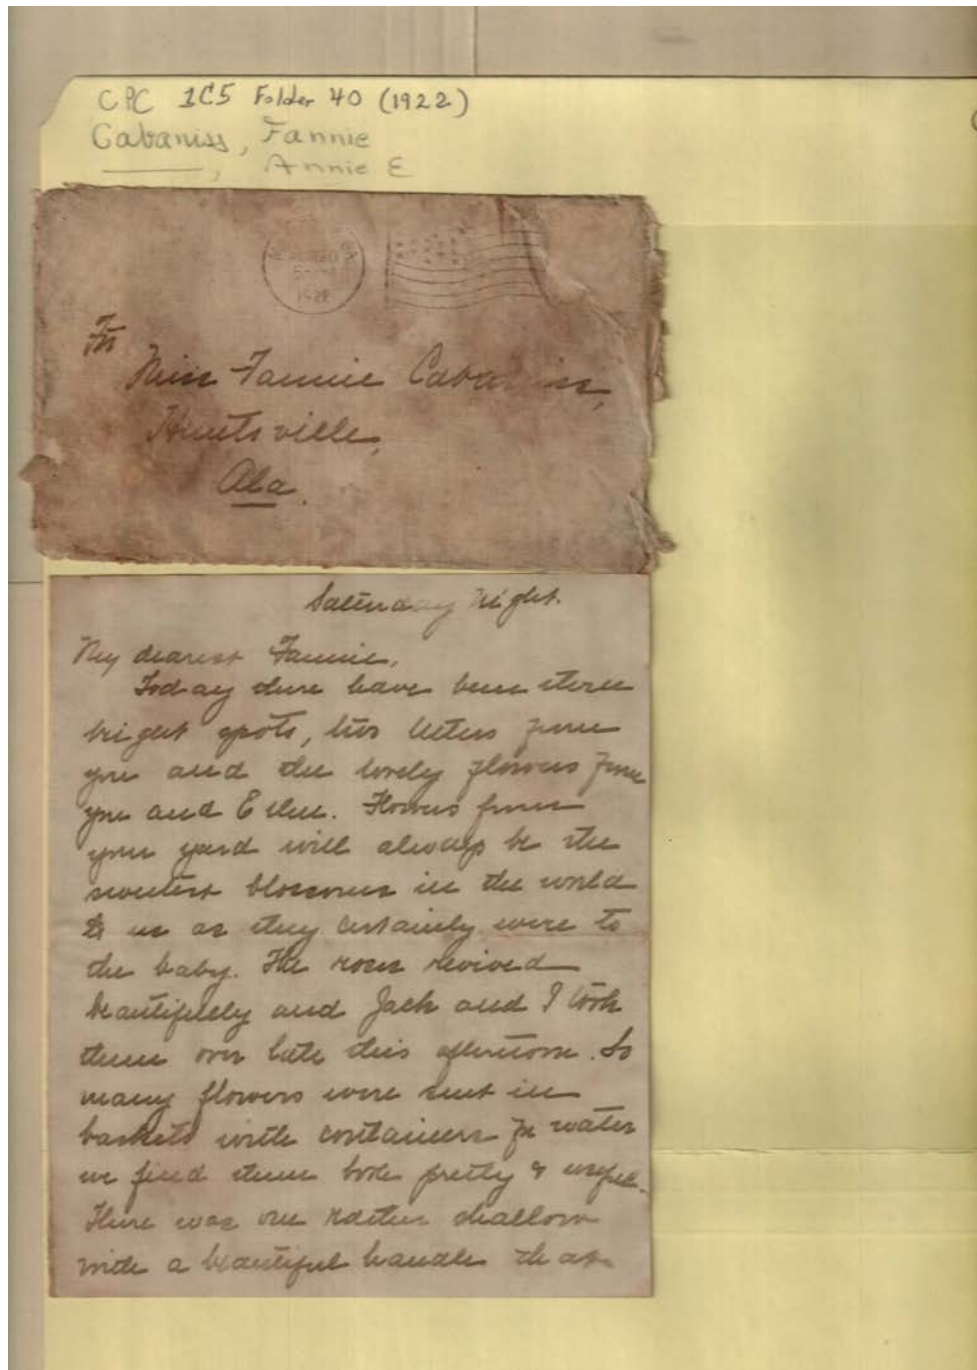 CPC 1C5 Folder 40 (1922)
Cabaniss, Fannie
———, Annie E
1922
Miss Fannie Cabaniss,
Huntsville,
Ala.
Saturday Night.
My dearest Fannie,
Today there have been three
bright spots, two letters from
you and the lovely flowers from
you and Ellen. Flowers from
your yard will always be the
sweetest blossoms in the world
to us as they certainly were to
the baby. The roses revived
beautifully and Jack and I took
them over late this afternoon. So
many flowers were sent in
baskets with containers for water
we find them both pretty & useful.
There was one rather shallow
with a beautiful handle that